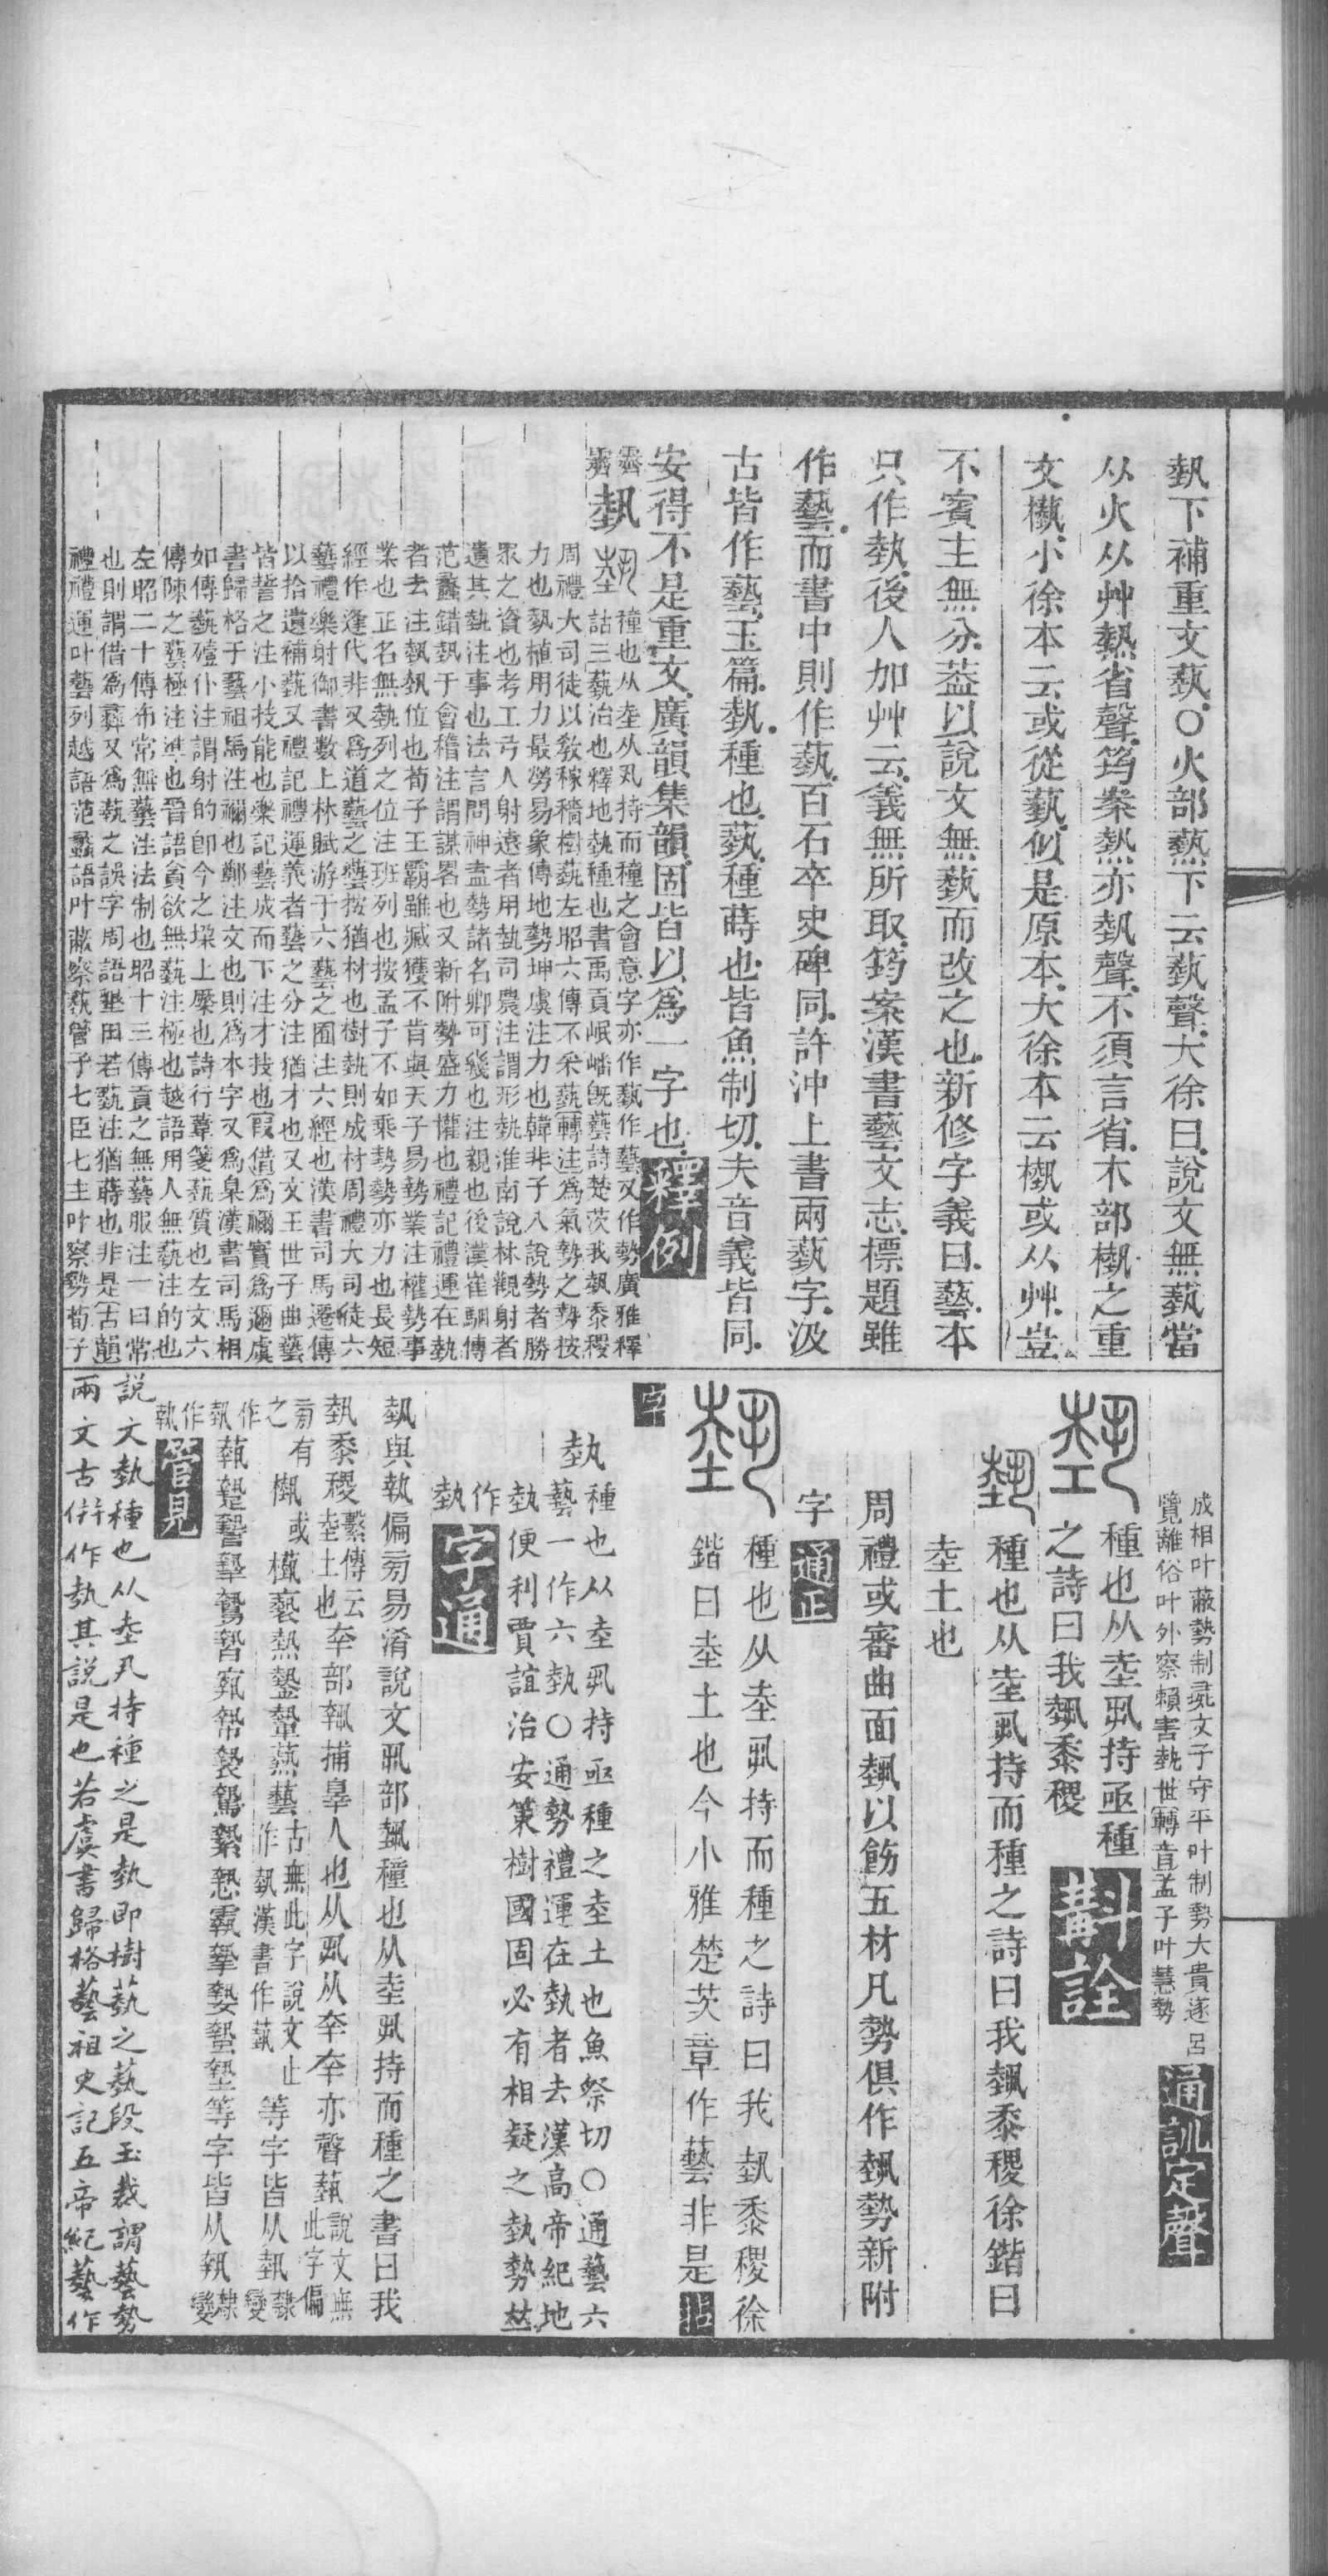 埶下補重文蓺○火部爇下云蓺聲大徐曰說文無蓺當
从火从艸熱省聲筠案熱亦埶聲不須言省木部槸之重
文㰙小徐本云或從蓺似是原本大徐本云槸或从艸豈
不賓主無分葢以說文無蓺而改之也新修字義曰藝本
只作埶後人加艸云義無所取筠案漢書藝文志標題雖
作藝而書中則作蓺百石卒史碑同許沖上書兩蓺字汲
古皆作藝玉篇埶種也蓺種蒔也皆魚制切夫音義皆同
安得不是重文廣韻集韻固皆以爲一字也釋例
埶
穜也从坴从丮持而穜之會意字亦作蓺作藝又作勢廣雅釋
詁三蓺治也釋地埶種也書禹貢岷嶓旣藝詩楚茨我埶黍稷
周禮大司徒以敎稼穡樹蓺左昭六傳不采蓺轉注爲氣勢之勢按
力也埶植用力最勞易象傳地勢坤虞注力也韓非子八說勢者勝
衆之資也考工弓人射遠者用埶司農注謂形埶淮南說林觀射者
遺其埶注事也法言問神盍勢諸名卿可幾也注親也後漢崔駰傳
范蠡錯埶于會稽注謂謀畧也又新附勢盛力權也禮記禮運在埶
者去注埶位也荀子王霸雖臧獲不肯與天子易勢業注權勢事
業也正名無埶列之位注班列也按孟子不如乘勢勢亦力也長短
經作逢代非又爲道藝之藝按猶材也樹埶則成材周禮大司徒六
藝禮樂射御書數上林賦游于六藝之囿注六經也漢書司馬遷傳
以拾遺補蓺又禮記禮運義者藝之分注猶才也又文王世子曲藝
皆誓之注小技能也樂記藝成而下注才技也叚借爲禰實爲邇虞
書歸格于藝祖馬注禰也鄭注文也則爲本字又爲臬漢書司馬相
如傳蓺殪仆注謂射的卽今之垜上橜也詩行葦箋蓺質也左文六
傳陳之藝極注準也晉語貪欲無蓺注極也越語用人無蓺注的也
左昭二十傳布常無藝注法制也昭十三傳貢之無藝服注一曰常
也則謂借爲彝又爲蓻之誤字周語墾田若蓺注猶蒔也非是古韻
禮禮運叶藝列越語范蠡語叶蔽察蓺管子七臣七主叶察勢荀子
成相叶蔽勢制㚇文子守平叶制勢大貴遂呂
覽離俗叶外察賴害埶世轉音孟子叶慧勢
通訓定聲
埶
種也从坴丮持亟種
之詩曰我埶黍稷
斠詮
埶
種也从坴丮持而種之詩曰我埶黍稷徐鍇曰
坴土也
周禮或審曲面埶以飭五材凡勢俱作埶勢新附
字
通正
埶
種也从坴丮持而種之詩曰我埶黍稷徐
鍇曰坴土也今小雅楚茨章作藝非是
字
埶
種也从坴丮持亟種之坴土也魚祭切○通藝六
藝一作六埶○通勢禮運在埶者去漢高帝紀地
埶便利賈誼治安策樹國固必有相疑之埶勢竝
作埶
字通
埶與執偏旁易淆說文丮部埶穜也从坴丮持而種之書曰我
埶黍稷繫傳云坴土也㚔部執捕辠人也从丮从㚔㚔亦聲蓻說文無此字偏
旁有之作
槸或㰙褻熱
藝古無此字說文止作埶漢書作蓺
等字皆从埶隸變
作執
等字皆从執隸變
作執
管見
說文埶種也从坴丮持種之是埶卽樹蓺之蓺段玉裁謂藝勢
兩文古倂作埶其說是也若虞書歸格藝祖史記五帝紀藝作